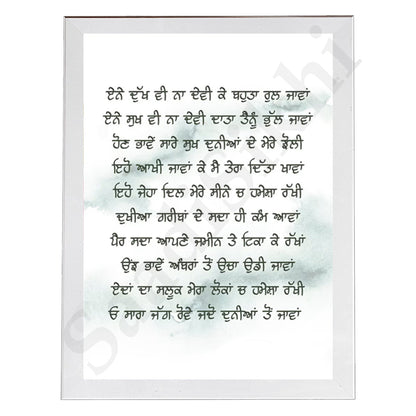 ਏਨੇ ਦੁੱਖ ਵੀ ਨਾ ਦੇਵੀ ਕੇ ਬਹੁਤਾ ਰੁਲ ਜਾਵਾਂ
ਏਨੇ ਸੁਖ ਵੀ ਨਾ ਦੇਵੀ ਦਾਤਾ ਤੈਨੂੰ ਭੁੱਲ ਜਾਵਾਂ
ਹੋਣ ਭਾਵੇਂ ਸਾਰੇ ਸੁਖ ਦੁਨੀਆਂ ਦੇ ਮੇਰੇ ਝੋਲੀ
ਇਹੋ ਆਖੀ ਜਾਵਾਂ ਕੇ ਮੈ ਤੇਰਾ ਦਿੱਤਾ ਖਾਵਾਂ
ਇਹੋ ਜੇਹਾ ਦਿਲ ਮੇਰੇ ਸੀਨੇ ਚ ਹਮੇਸਾ ਰੱਖੀ
ਦੁਖੀਆ ਗਰੀਬਾਂ ਦੇ ਸਦਾ ਹੀ ਕੰਮ ਆਵਾਂ
ਪੈਰ ਸਦਾ ਆਪਣੇ ਜਮੀਨ ਤੇ ਟਿਕਾ ਕੇ ਰੱਖਾਂ
ਉਂਝ ਭਾਵੇਂ ਅੰਬਰਾਂ ਤੋਂ ਉਚਾ ਉਡੀ ਜਾਵਾਂ
ਏਦਾਂ ਦਾ ਸਲੂਕ ਮੇਰਾ ਲੋਕਾਂ ਚ ਹਮੇਸਾ ਰੱਖੀ
ਓ ਸਾਰਾ ਜੱਗ ਰੋਵੇ ਜਦੋ ਦੁਨੀਆਂ ਤੋਂ ਜਾਵਾਂ